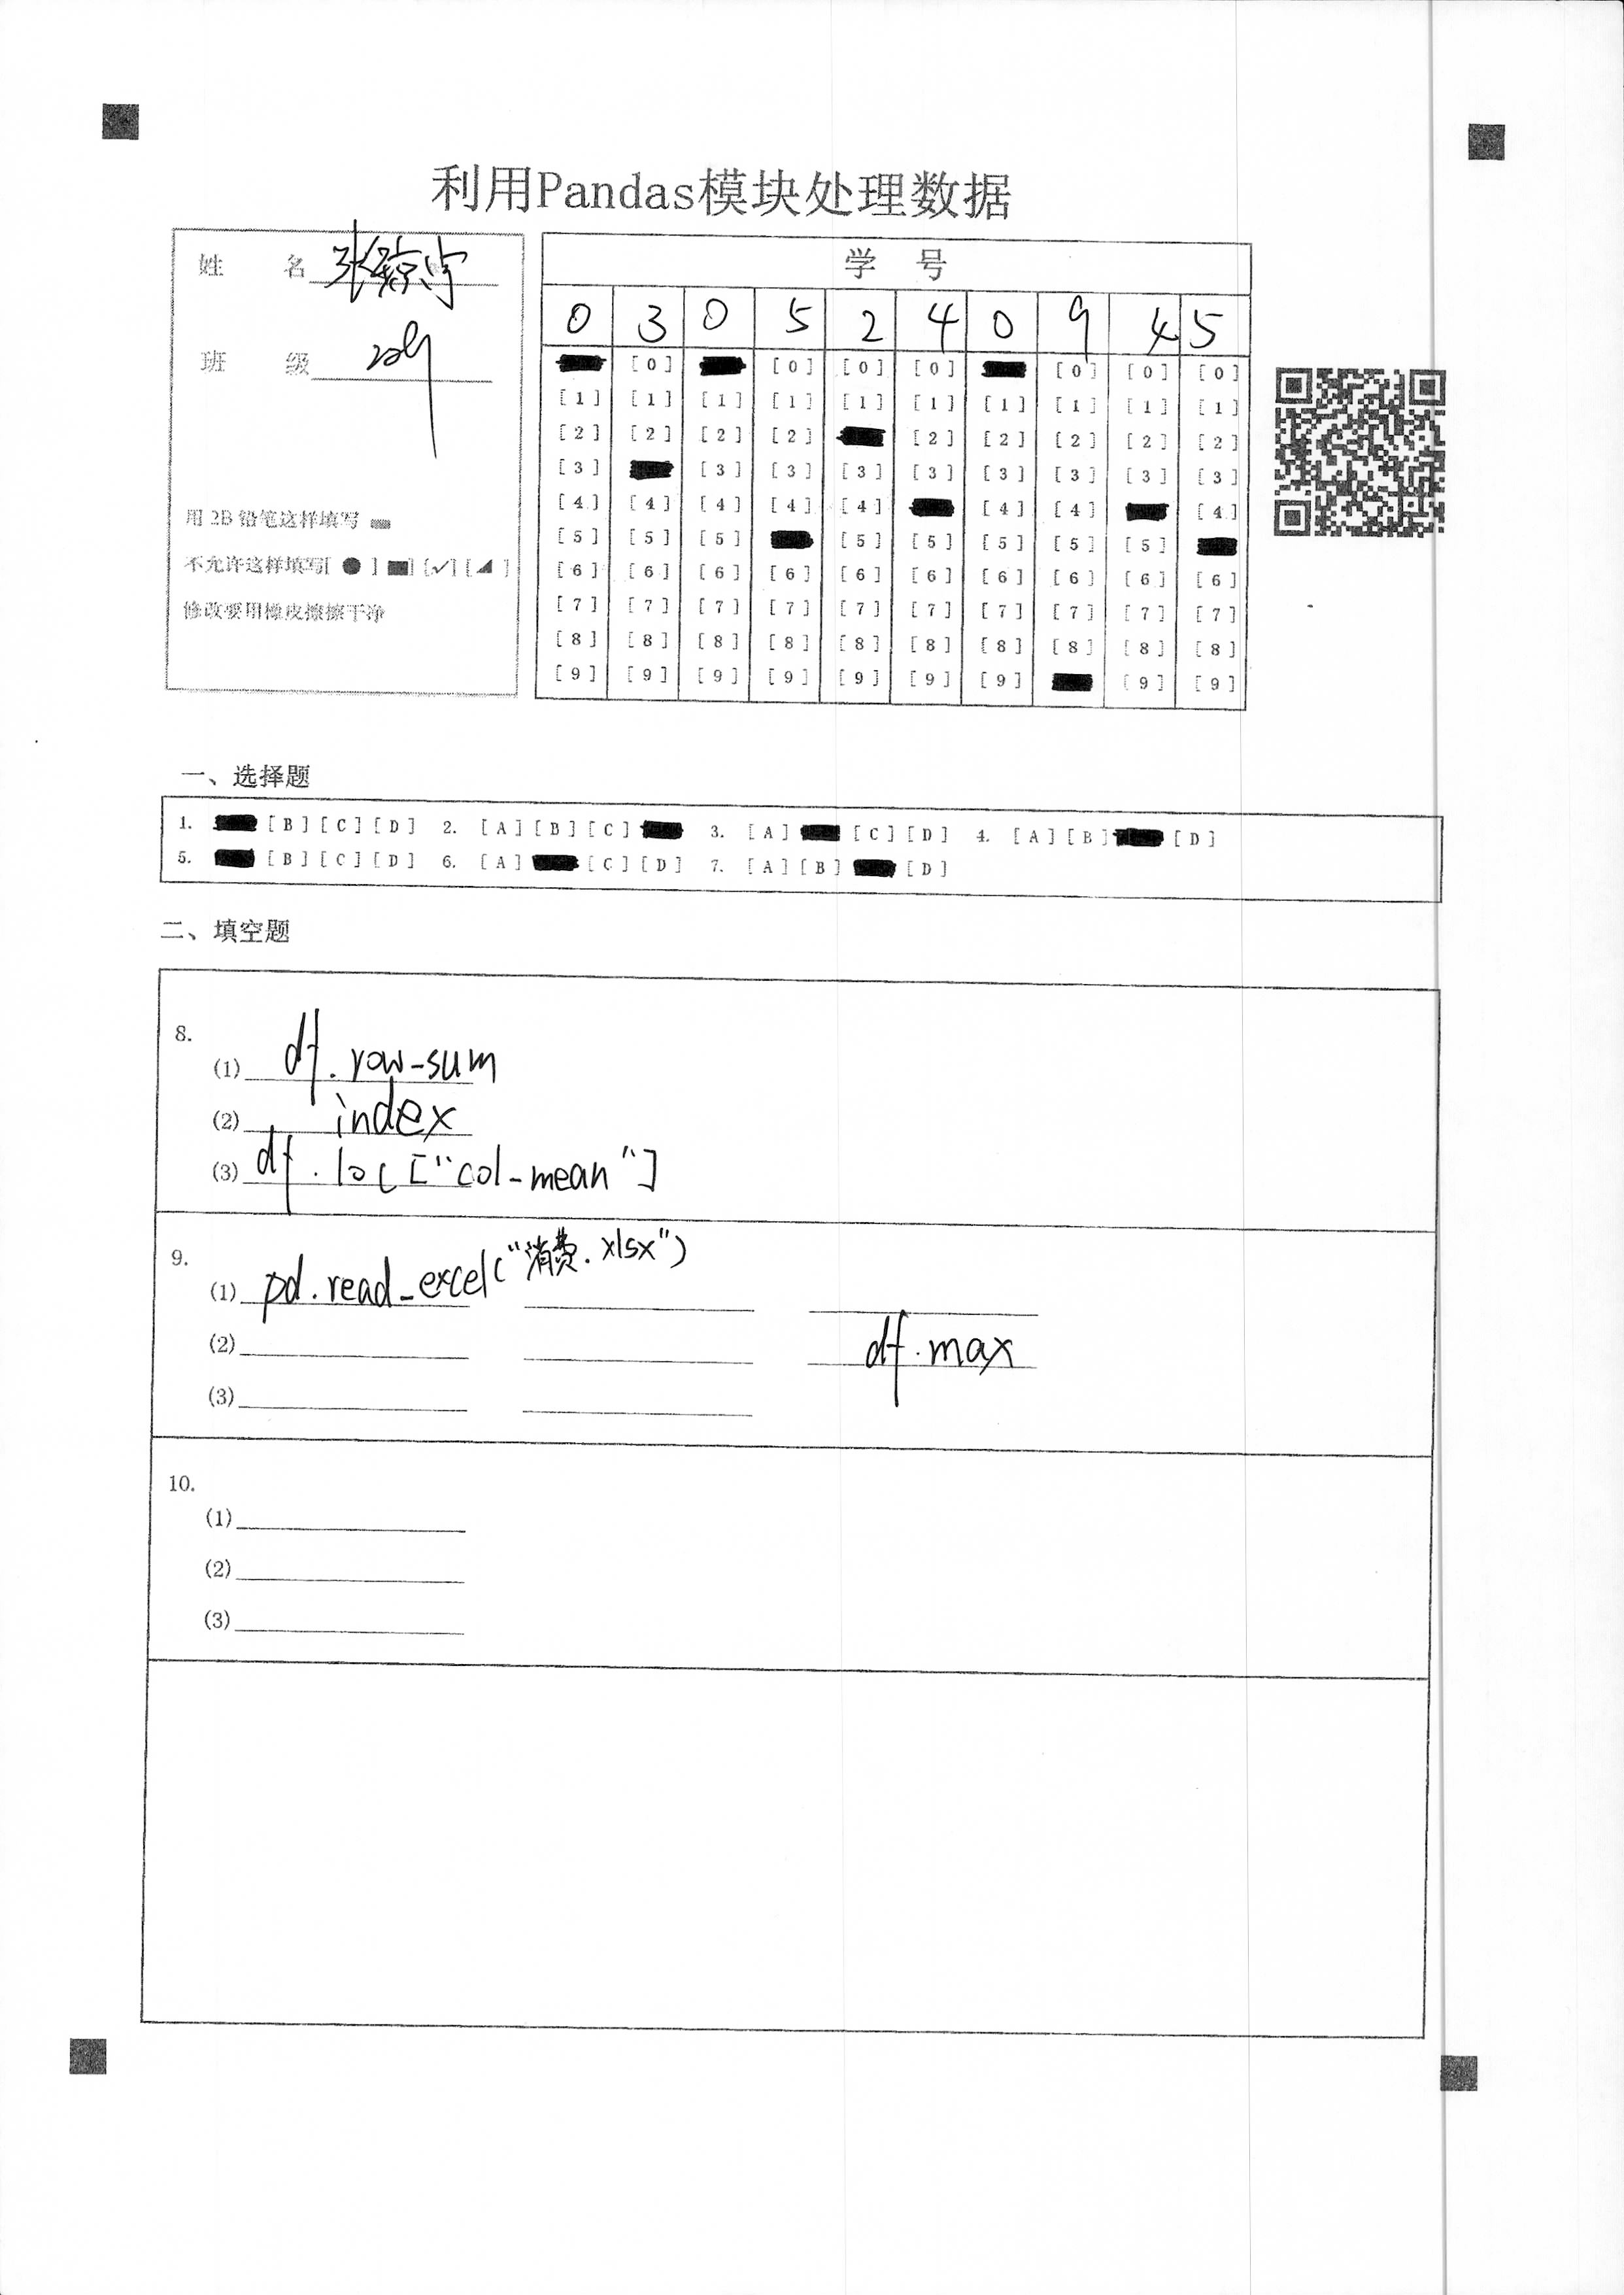 利用Pandas模块处理数据
姓 名 张
班 级 209
用 2B 铅笔这样填写
不允许这样填写[ ● ] [■] [✓] [◢ ]
修改要用橡皮擦擦干净
学 号
0 3 0 5 2 4 0 9 4 5
[0] [0] [0] [0] [0] [0] [0]
[1] [1] [1] [1] [1] [1] [1] [1] [1] [1]
[2] [2] [2] [2] [2] [2] [2] [2] [2]
[3] [3] [3] [3] [3] [3] [3] [3] [3]
[4] [4] [4] [4] [4] [4] [4] [4]
[5] [5] [5] [5] [5] [5] [5] [5]
[6] [6] [6] [6] [6] [6] [6] [6] [6] [6]
[7] [7] [7] [7] [7] [7] [7] [7] [7] [7]
[8] [8] [8] [8] [8] [8] [8] [8] [8] [8]
[9] [9] [9] [9] [9] [9] [9] [9] [9]
一、选择题
1. [B] [C] [D] 2. [A] [B] [C] 3. [A] [C] [D] 4. [A] [B] [D]
5. [B] [C] [D] 6. [A] [C] [D] 7. [A] [B] [D]
二、填空题
8.
(1) df.row-sum
(2) index
(3) df.loc["col-mean"]
9.
(1) pd.read_excel("消费.xlsx")
(2) df.max
(3)
10.
(1)
(2)
(3)